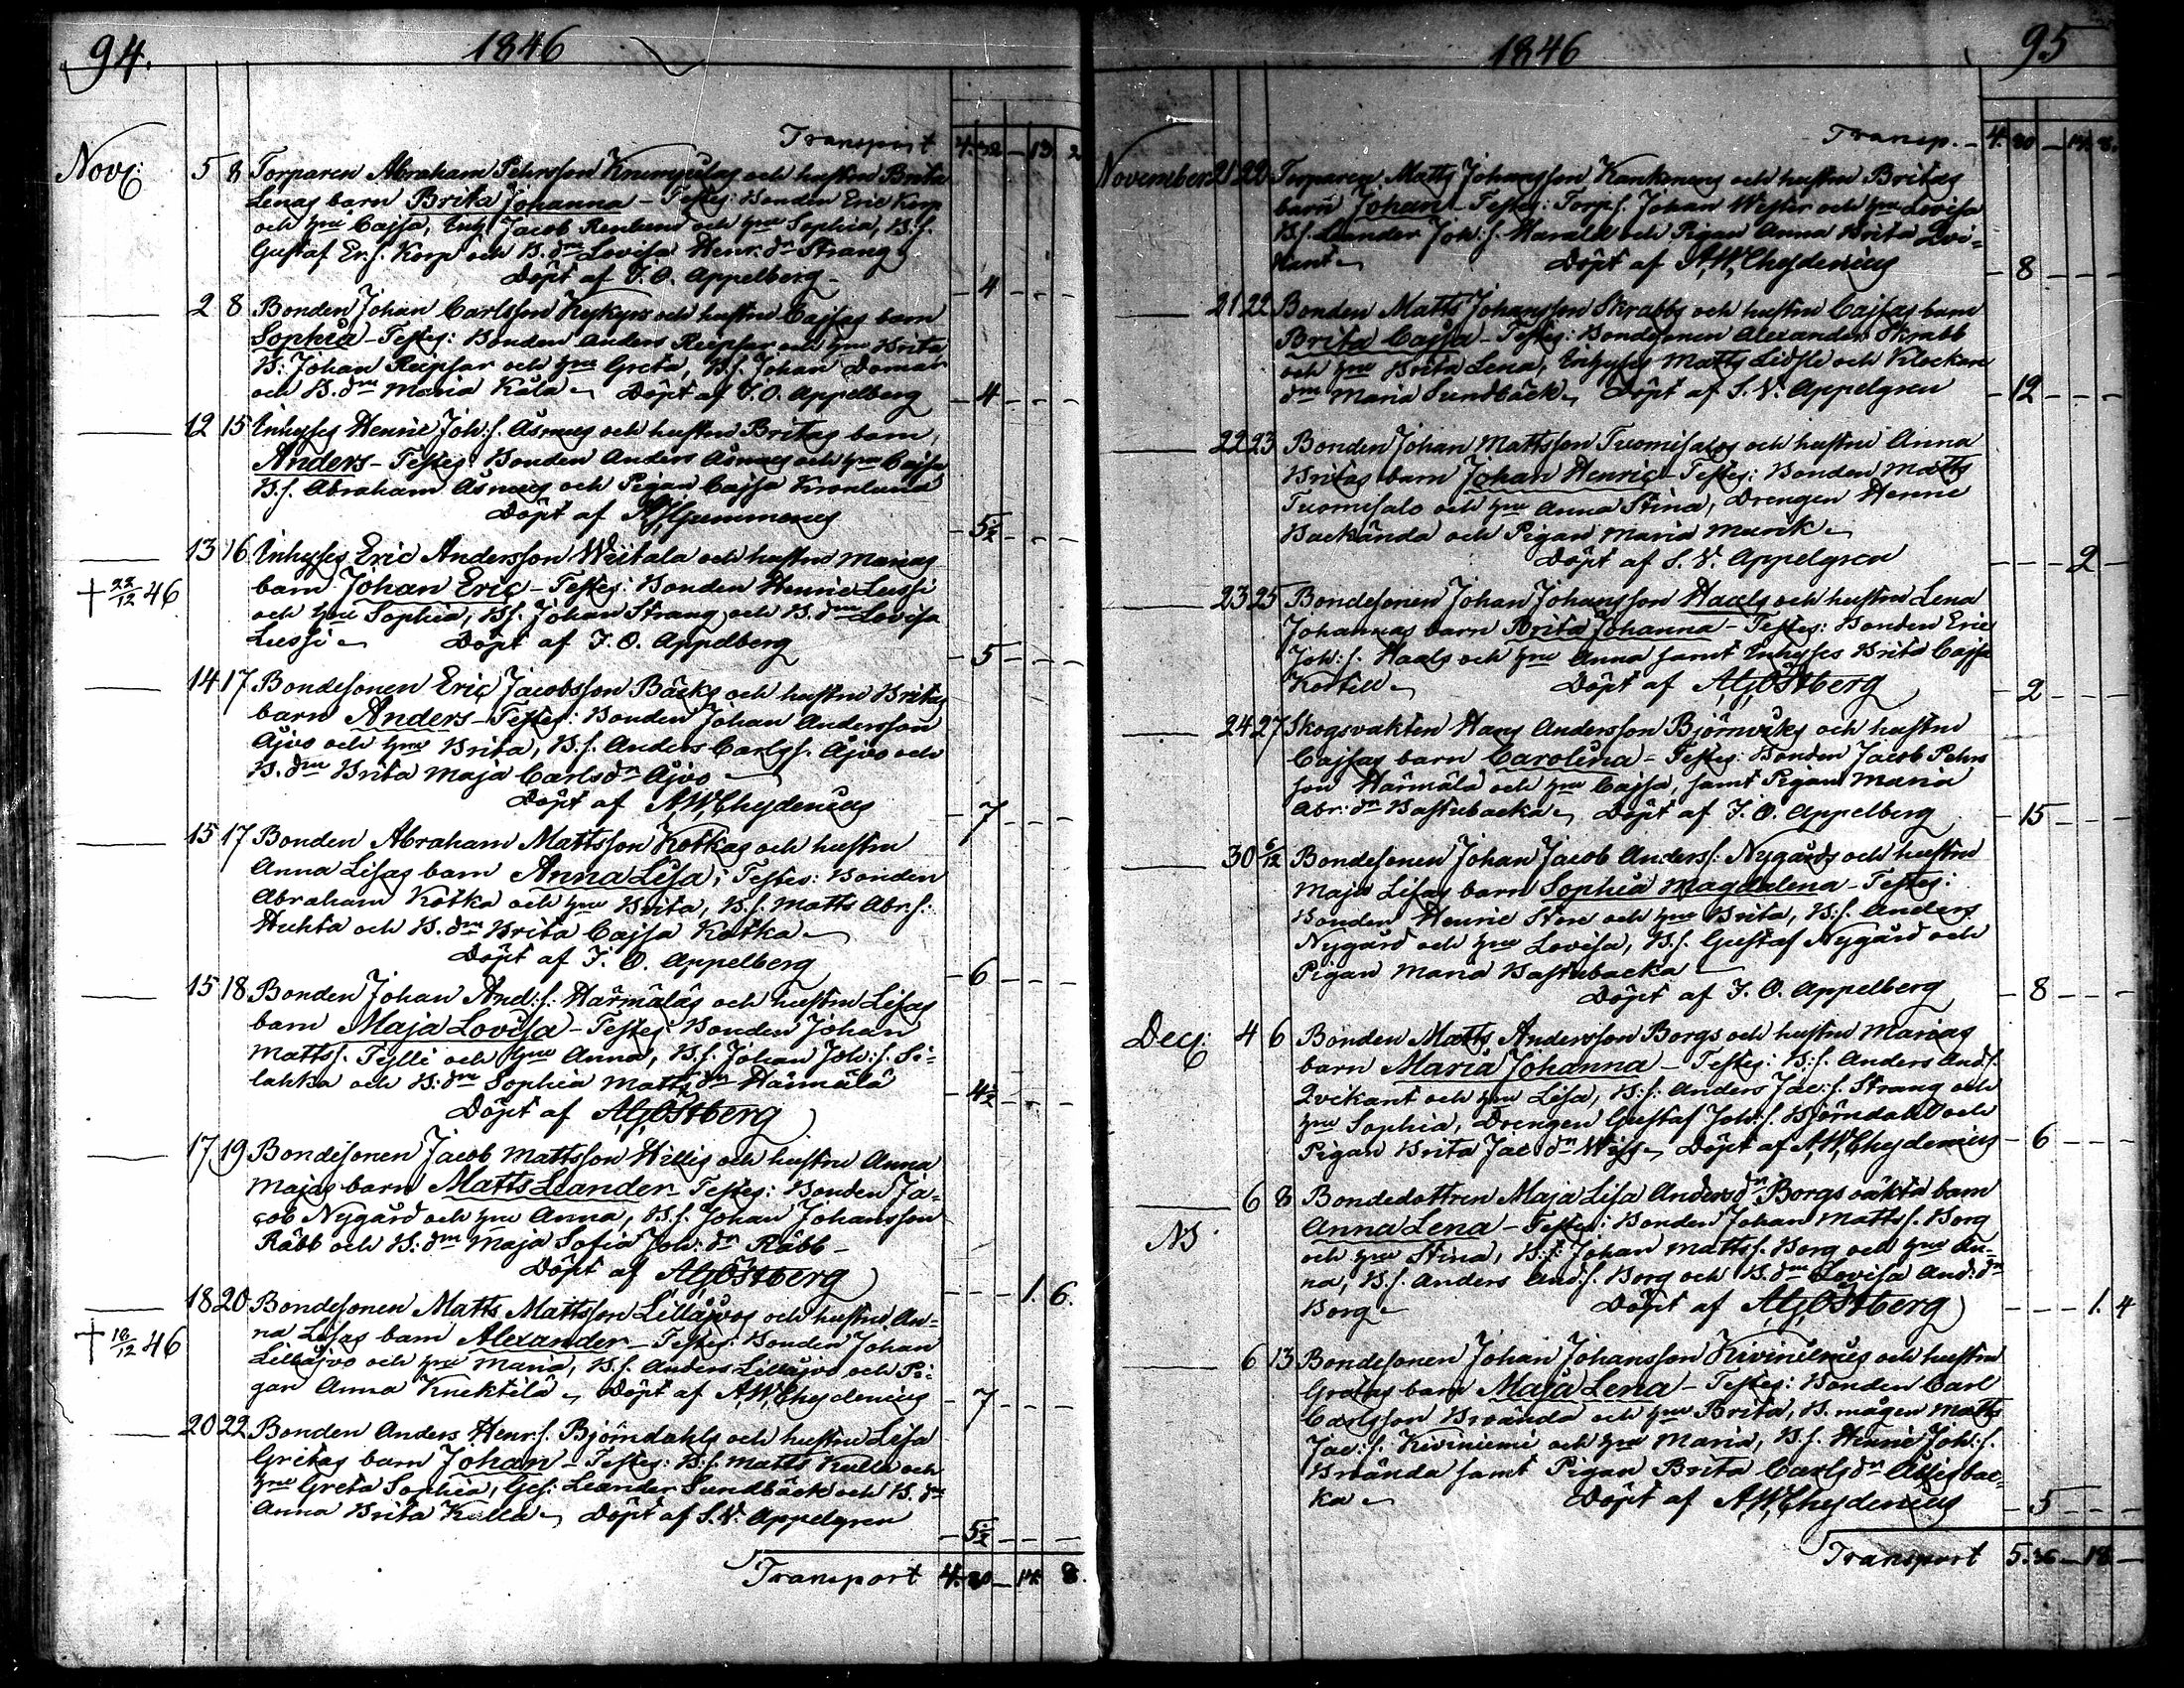 94. 1846
Transport 4. 32 – 13. 2
Novr: 5 8 Torparen Abraham Pehrsson och hustru Brita
Lenas barn Brita Johanna – Testes: Bonden Eric Korp
och hru Cajsa, Inh: Jacob Renlund och hru Sophia, B.s.
Gustaf Er.s. Korp och B. dra Lovisa Henr. dr Strang
Döpt af J. O. Appelberg – 4 – –
2 8 Bonden Johan Carlsson och hustru Cajsas barn
Sophia – Testes: Bonden Anders Reipsar och hru Brita
B: Johan Reipsar och hru Greta, B.s. Johan Domar
och B. dra Maria Kåla – Döpt af J. O. Appelberg – 4 – –
12 15 Inhyses Henric Joh: s. Åsnäs och hustru Britas barn
Anders – Testes: Bonden Anders Åsnäs och hru Cajsa
B.s. Abraham Åsnäs och Pigan Cajsa Kronlund
Döpt af – 5½ – –
13 16 Inhyses Eric Andersson Weitala och hustru Marias
† 22/12 46 barn Johan Eric – Testes: Bonden Henric Lussi
och hru Sophia, B.s. Johan Strang och B. dra Lovisa
Lussi – Döpt af J. O. Appelberg – 5 – –
14 17 Bondesonen Eric Jacobsson Bäcks och hustru Britas
barn Anders – Testes: Bonden Johan Andersson
Åjvo och hru Brita, B.s. Anders Carls s. Åjvo och
B. dra Brita Maja Carls dr Åjvo –
Döpt af A,W,Chydenius – 7 – –
15 17 Bonden Abraham Mattsson Kotkas och hustru
Anna Lisas barn Anna Lisa; Testes: Bonden
Abraham Kotka och hru Brita, B.s. Matts Abr.s.
Huhta och B. dra Brita Cajsa Kotka –
Döpt af J. O. Appelberg – 6 – –
15 18 Bonden Johan And: s: Härmäläs och hustru Lisas
barn Maja Lovisa – Testes: Bonden Johan
Matts s. Tylli och hru Anna, B.s. Johan Joh: s. Si=
lahka och B: dra Sophia Matts dr Härmälä
Döpt af A,G,Östberg – 4½ – –
17 19 Bondesonen Jacob Mattsson Willis och hustru Anna
Majas barn Matts Leander – Testes: Bonden Ja=
cob Nygård och hru Anna, B.s. Johan Johansson
Räbb och B: dra Maja Sofia Joh: dr Räbb –
Döpt af A,G,Östberg – – 1. 6.
18 20 Bondesonen Matts Mattsson Lillåjvos och hustru An=
† 18/12 46 na Lisas barn Alexander – Testes: Bonden Johan
Lillåjvo och hru Maria, B.s. Anders Lillåjvo och Pi=
gan Anna Knektilä – Döpt af A,W,Chydenius – 7 – –
20 22 Bonden Anders Henr: s. Björndahls och hustru Lisa
Gretas barn Johan – Testes: B.s. Matts Kulla och
hru Greta Sophia, Ges: Leander Sundbäck och B. dr
Anna Brita Kulla – Döpt af S. W. Appelgren – 5½ – –
Transport 4. 20 – 14. 8.
1846 95
Transp. – 4. 20 – 14. 8.
November 21 22 Torparen Matts Johansson och hustru Britas
barn Johan – Testes: Torp s. Johan Wester och hru Lovisa
B.s. Leander Joh: s. Harald och Pigan Anna Brita Qvi=
kant – Döpt af A,W,Chydenius – 8 – –
21 22 Bonden Matts Johansson Skrabbs och hustru Cajsas barn
Brita Cajsa – Testes: Bondesonen Alexander Skrabb
och hru Brita Lena, Inhyses Matts och Klockare
dra Maria Sundbäck – Döpt af S. W. Appelgren – 12 – –
22 23 Bonden Johan Mattsson Tuomisalos och hustru Anna
Britas barn Johan Henric – Testes: Bonden Matts
Tuomisalo och hru Anna Stina, Drengen Henric
Backända och Pigan Maria Murik –
Döpt af S. W. Appelgren – – 2 –
23 25 Bondesonen Johan Johansson Haals och hustru Lena
Johannas barn Brita Johanna – Testes: Bonden Eric
Joh: s. Haals och hru Anna samt Inhyses Brita Cajsa
Kortell – Döpt af A,G,Östberg – 2 – –
24 27 Skogsvakten Hans Andersson Björnviks och hustru
Cajsas barn Carolina – Testes: Bonden Jacob Pehrs
son Härmälä och hru Cajsa, samt Pigan Maria
Abr: dr Bastubacka – Döpt af J. O. Appelberg – 15 – –
30 6/12 Bondesonen Johan Jacob Anders s: Nygårds och hustru
Maja Lisas barn Sophia Magdalena – Testes:
Bonden Henric Store och hru Brita, B: s. Anders
Nygård och hru Lovisa, B.s. Gustaf Nygård och
Pigan Maria Bastubacka –
Döpt af J. O. Appelberg – 8 – –
Decr: 4 6 Bonden Matts Andersson Borgs och hustru Marias
barn Maria Johanna – Testes: B: s. Anders And: s.
Qvikant och hru Lisa, B: s: Anders Jac: s. Strang och
hru Sophia, Drengen Gustaf Joh: s. Björndahl och
Pigan Brita Jac dr Wiss – Döpt af A,W,Chydenius – 6 – –
6 8 Bondedottren Maja Lisa Anders dr Borgs oäkta barn
NB Anna Lena – Testes: Bonden Johan Matts s. Borg
och hru Stina, B: s: Johan Matts s. Borg och hru An=
na, B.s. Anders And: s. Borg och B. dra Lovisa And: dr
Borg – Döpt af A,G,Östberg – – 1. 4
6 13 Bondesonen Johan Johansson Kiviniemis och hustru
Gretas barn Maja Lena – Testes: Bonden Carl
Carlsson Brända och hru Brita, B. mågen Matts
Jac: s. Kiviniemi och hru Maria, B.s. Henric Joh: s.
Brända samt Pigan Brita Carls dr Abbisbac=
ka – Döpt af A,W,Chydenius – 5 – –
Transport 5. 26 – 18 –